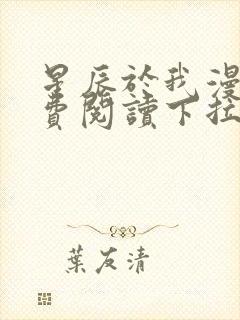 星辰於我漫
費閱讀下拉
葉友清